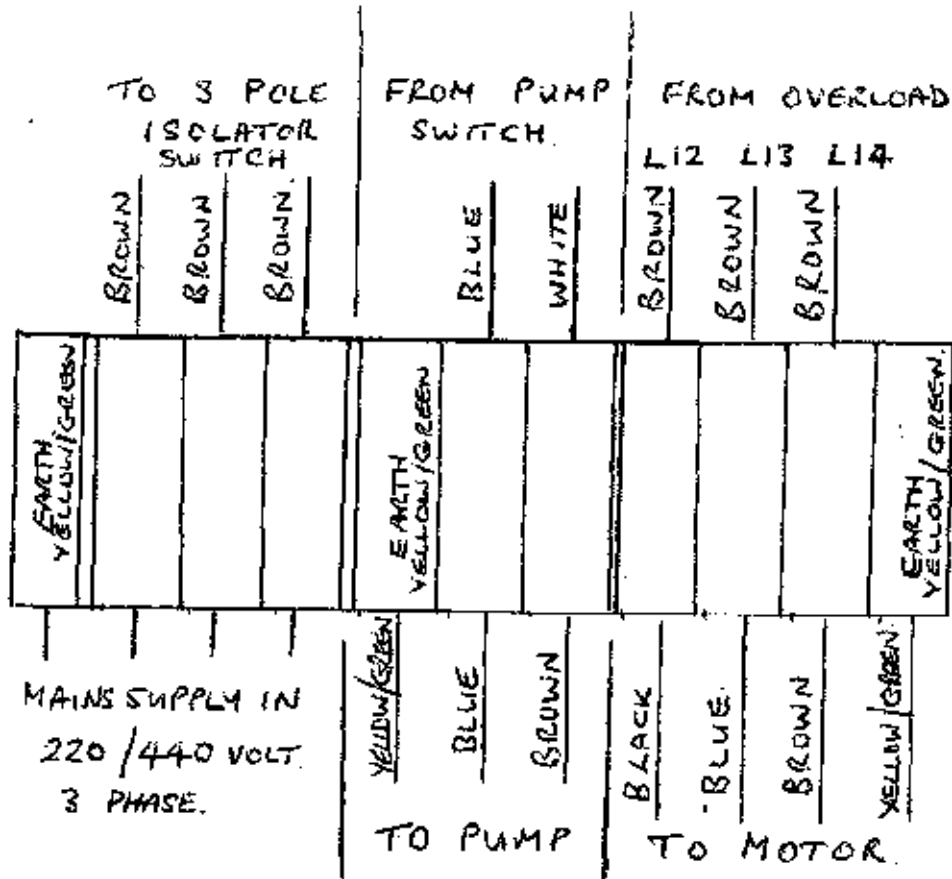 TO 3 POLE
ISOLATOR
SWITCH
FROM PUMP
SWITCH
FROM OVERLOAD
L12 L13 L14
BROWN
BROWN
BROWN
BLUE
WHITE
BROWN
BROWN
BROWN
EARTH
YELLOW/GREEN
EARTH
YELLOW/GREEN
EARTH
YELLOW/GREEN.
MAINS SUPPLY IN
220/440 VOLT.
3 PHASE.
YELLOW/GREEN
BLUE
BROWN
BLACK
BLUE.
BROWN
YELLOW/GREEN
TO PUMP
TO MOTOR